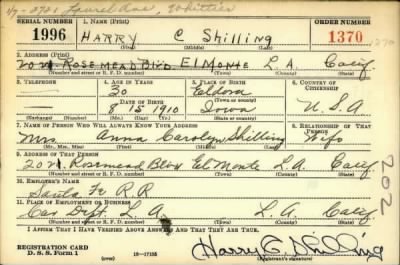 2721 Laurel Ave, Whittier
SERIAL NUMBER 1. NAME (Print) ORDER NUMBER
1996 HARRY C Shilling 1370
(First) (Middle) (Last)
2. ADDRESS (Print)
202 N. Rosemead Blvd. El Monte L.A. Calif
(Number and street or R. F. D. number) (Town) (County) (State)
3. TELEPHONE 4. AGE IN YEARS 5. PLACE OF BIRTH 6. COUNTRY OF CITIZENSHIP
30 Eldora
(Town or county)
DATE OF BIRTH
8 15 1910 Iowa U.S.A
(Exchange) (Number) (Mo.) (Day) (Yr.) (State or country)
7. NAME OF PERSON WHO WILL ALWAYS KNOW YOUR ADDRESS 8. RELATIONSHIP OF THAT PERSON
Mrs. Anna Carolyn Shilling Wife
(Mr., Mrs., Miss) (First) (Middle) (Last)
9. ADDRESS OF THAT PERSON
202 N. Rosemead Blvd El Monte L.A. Calif
(Number and street or R. F. D. number) (Town) (County) (State)
10. EMPLOYER'S NAME
Santa Fe R.R
11. PLACE OF EMPLOYMENT OR BUSINESS
Car Dept. L.A. L.A. Calif.
(Number and street or R. F. D. number) (Town) (County) (State)
I AFFIRM THAT I HAVE VERIFIED ABOVE ANSWERS AND THAT THEY ARE TRUE.
REGISTRATION CARD
D. S. S. Form 1 (over) 16—17105 Harry C. Shilling
(Registrant's signature)
202